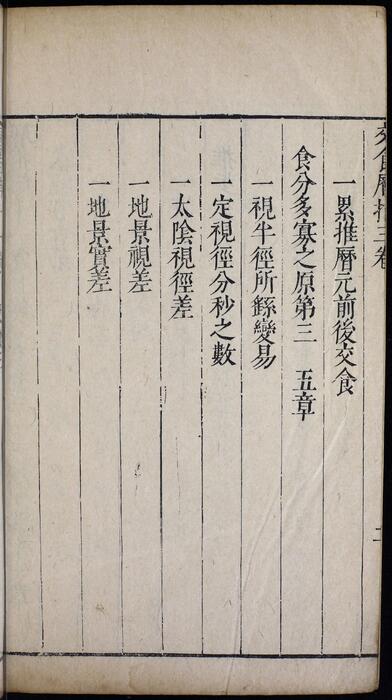 交食曆指三卷
一累推曆元前後交食
食分多寡之原第三　五章
一視半徑所繇變易
一定視徑分秒之數
一太陰視徑差
一地景視差
一地景實差